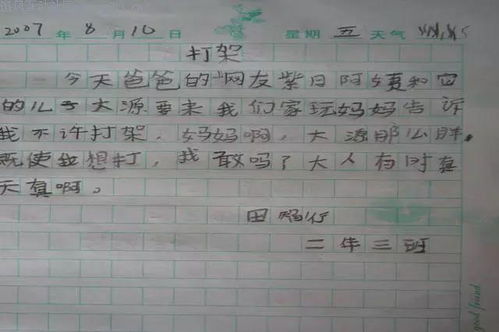 2007年8月10日 星期五 天气
打架
今天爸爸的"网友紫日阿姨和它
的儿子大源要来我们家玩妈妈告诉
我不许打架.妈妈啊,大源那么胖.
既使我想打,我敢吗?大人有时真
天真啊。
田
二年三班
good friend